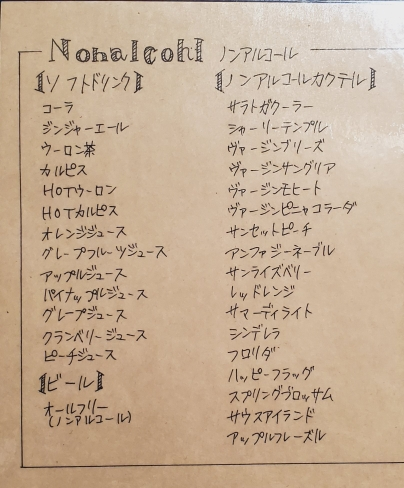 Nonalcohl ノンアルコール
【ソフトドリンク】
コーラ
ジンジャーエール
ウーロン茶
カルピス
HOTウーロン
HOTカルピス
オレンジジュース
グレープフルーツジュース
アップルジュース
パイナップルジュース
グレープジュース
クランベリージュース
ピーチジュース
【ビール】
オールフリー
(ノンアルコール)
【ノンアルコールカクテル】
サラトガクーラー
シャーリーテンプル
ヴァージンブリーズ
ヴァージンサングリア
ヴァージンモヒート
ヴァージンピニャコラーダ
サンセットピーチ
アンファジーネーブル
サンライズベリー
レッドレンジ
サマーディライト
シンデレラ
フロリダ
ハッピーフラッグ
スプリングブロッサム
サウスアイランド
アップルフレーズル